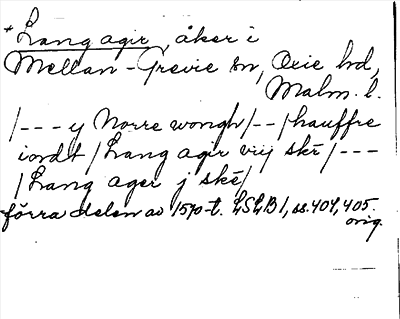 * Lang agir, åker i
Mellan-Grevie sn, Oxie hd,
Malm. l.
/--- y Norre wongh/--/hauffre
iordt/Lang agr vrij skē/---
/Lang ager j skē/
förra delen av 1570-t. LSLB1, ss. 404, 405.
orig.